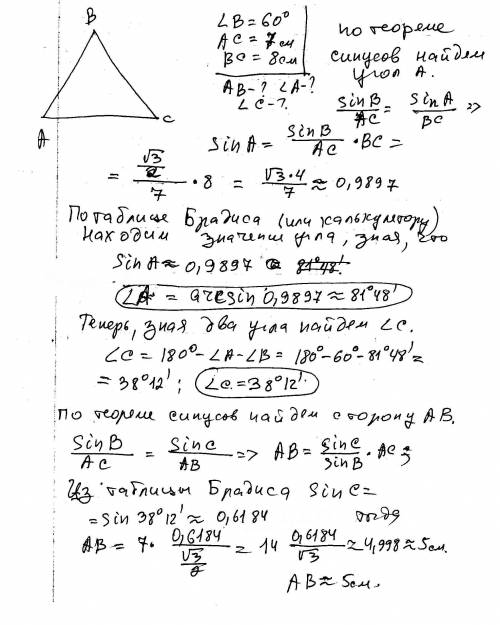 B
A
C
∠B = 60°
AC = 7см
BC = 8см
AB-? ∠A-?
∠C-?
по теореме
синусов найдем
угол A.
sinB/AC = sinA/BC =>
sinA = sinB/AC · BC =
= (√3/2)/7 · 8 = √3·4/7 ≈ 0,9897
По таблице Брадиса (или калькулятору)
находим значение угла, зная, что
sinA ≈ 0,9897 81°48'
∠A = arcsin 0,9897 ≈ 81°48'
Теперь, зная два угла найдем ∠C.
∠C = 180° - ∠A - ∠B = 180° - 60° - 81°48' =
= 38°12'; ∠C = 38°12'
по теореме синусов найдем сторону AB.
SinB/AC = SinC/AB => AB = sinC/sinB · AC;
Из таблицы Брадиса SinC =
= sin 38°12' ≈ 0,6184 тогда
AB = 7 · 0,6184/(√3/2) = 14 0,6184/√3 ≈ 4,998 ≈ 5см.
AB ≈ 5см.